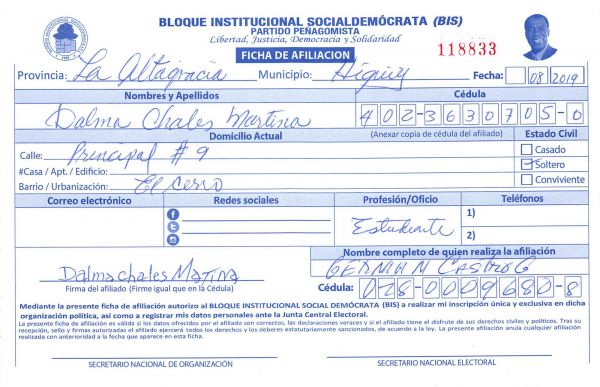 BLOQUE INSTITUCIONAL SOCIALDEMÓCRATA (BIS)
PARTIDO PEÑAGOMISTA
Libertad, Justicia, Democracia y Solidaridad
FICHA DE AFILIACION
118833
Provincia: La Altagracia Municipio: Higuey Fecha: 08 2019
Nombres y Apellidos Cédula
Dalma Chales Martina 402-3630705-0
Domicilio Actual (Anexar copia de cédula del afiliado) Estado Civil
Calle: Principal # 9 Casado
#Casa / Apt. / Edificio: Soltero
Barrio / Urbanización: El Cerro Conviviente
Correo electrónico Redes sociales Profesión/Oficio Teléfonos
Estudiante 1)
2)
Nombre completo de quien realiza la afiliación
GERMAN CASTRO G
Dalma chales Martina
Firma del afiliado (Firme igual que en la Cédula) Cédula: 028-0009680-8
Mediante la presente ficha de afiliación autorizo al BLOQUE INSTITUCIONAL SOCIAL DEMÓCRATA (BIS) a realizar mi inscripción única y exclusiva en dicha
organización política, así como a registrar mis datos personales ante la Junta Central Electoral.
La presente ficha de afiliación es válida si los datos ofrecidos por el afiliado son correctos, las declaraciones veraces y si el afiliado tiene el disfrute de sus derechos civiles y políticos. Tras su
recepción, sello y firmas autorizadas el afiliado ejercerá todos los derechos y los deberes estatutariamente sancionados, de acuerdo a la ley. La presente afiliación anula cualquier afiliación
realizada con anterioridad a la fecha que aparece en esta ficha.
SECRETARIO NACIONAL DE ORGANIZACIÓN SECRETARIO NACIONAL ELECTORAL